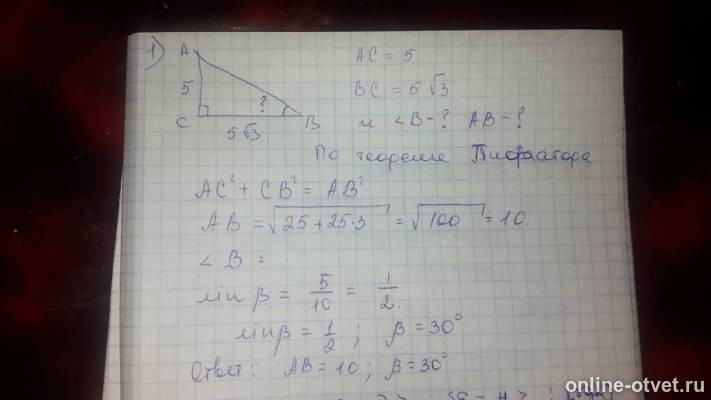 1) A
AC = 5
5
BC = 5√3
?
C B
и <B-? AB-?
5√3
По теореме Пифагора
AC² + CB² = AB²
AB = √25+25·3 = √100 = 10.
<B =
sin β = 5/10 = 1/2.
sin β = 1/2 ; β = 30°
Ответ: AB = 10 ; β = 30°
online-otvet.ru